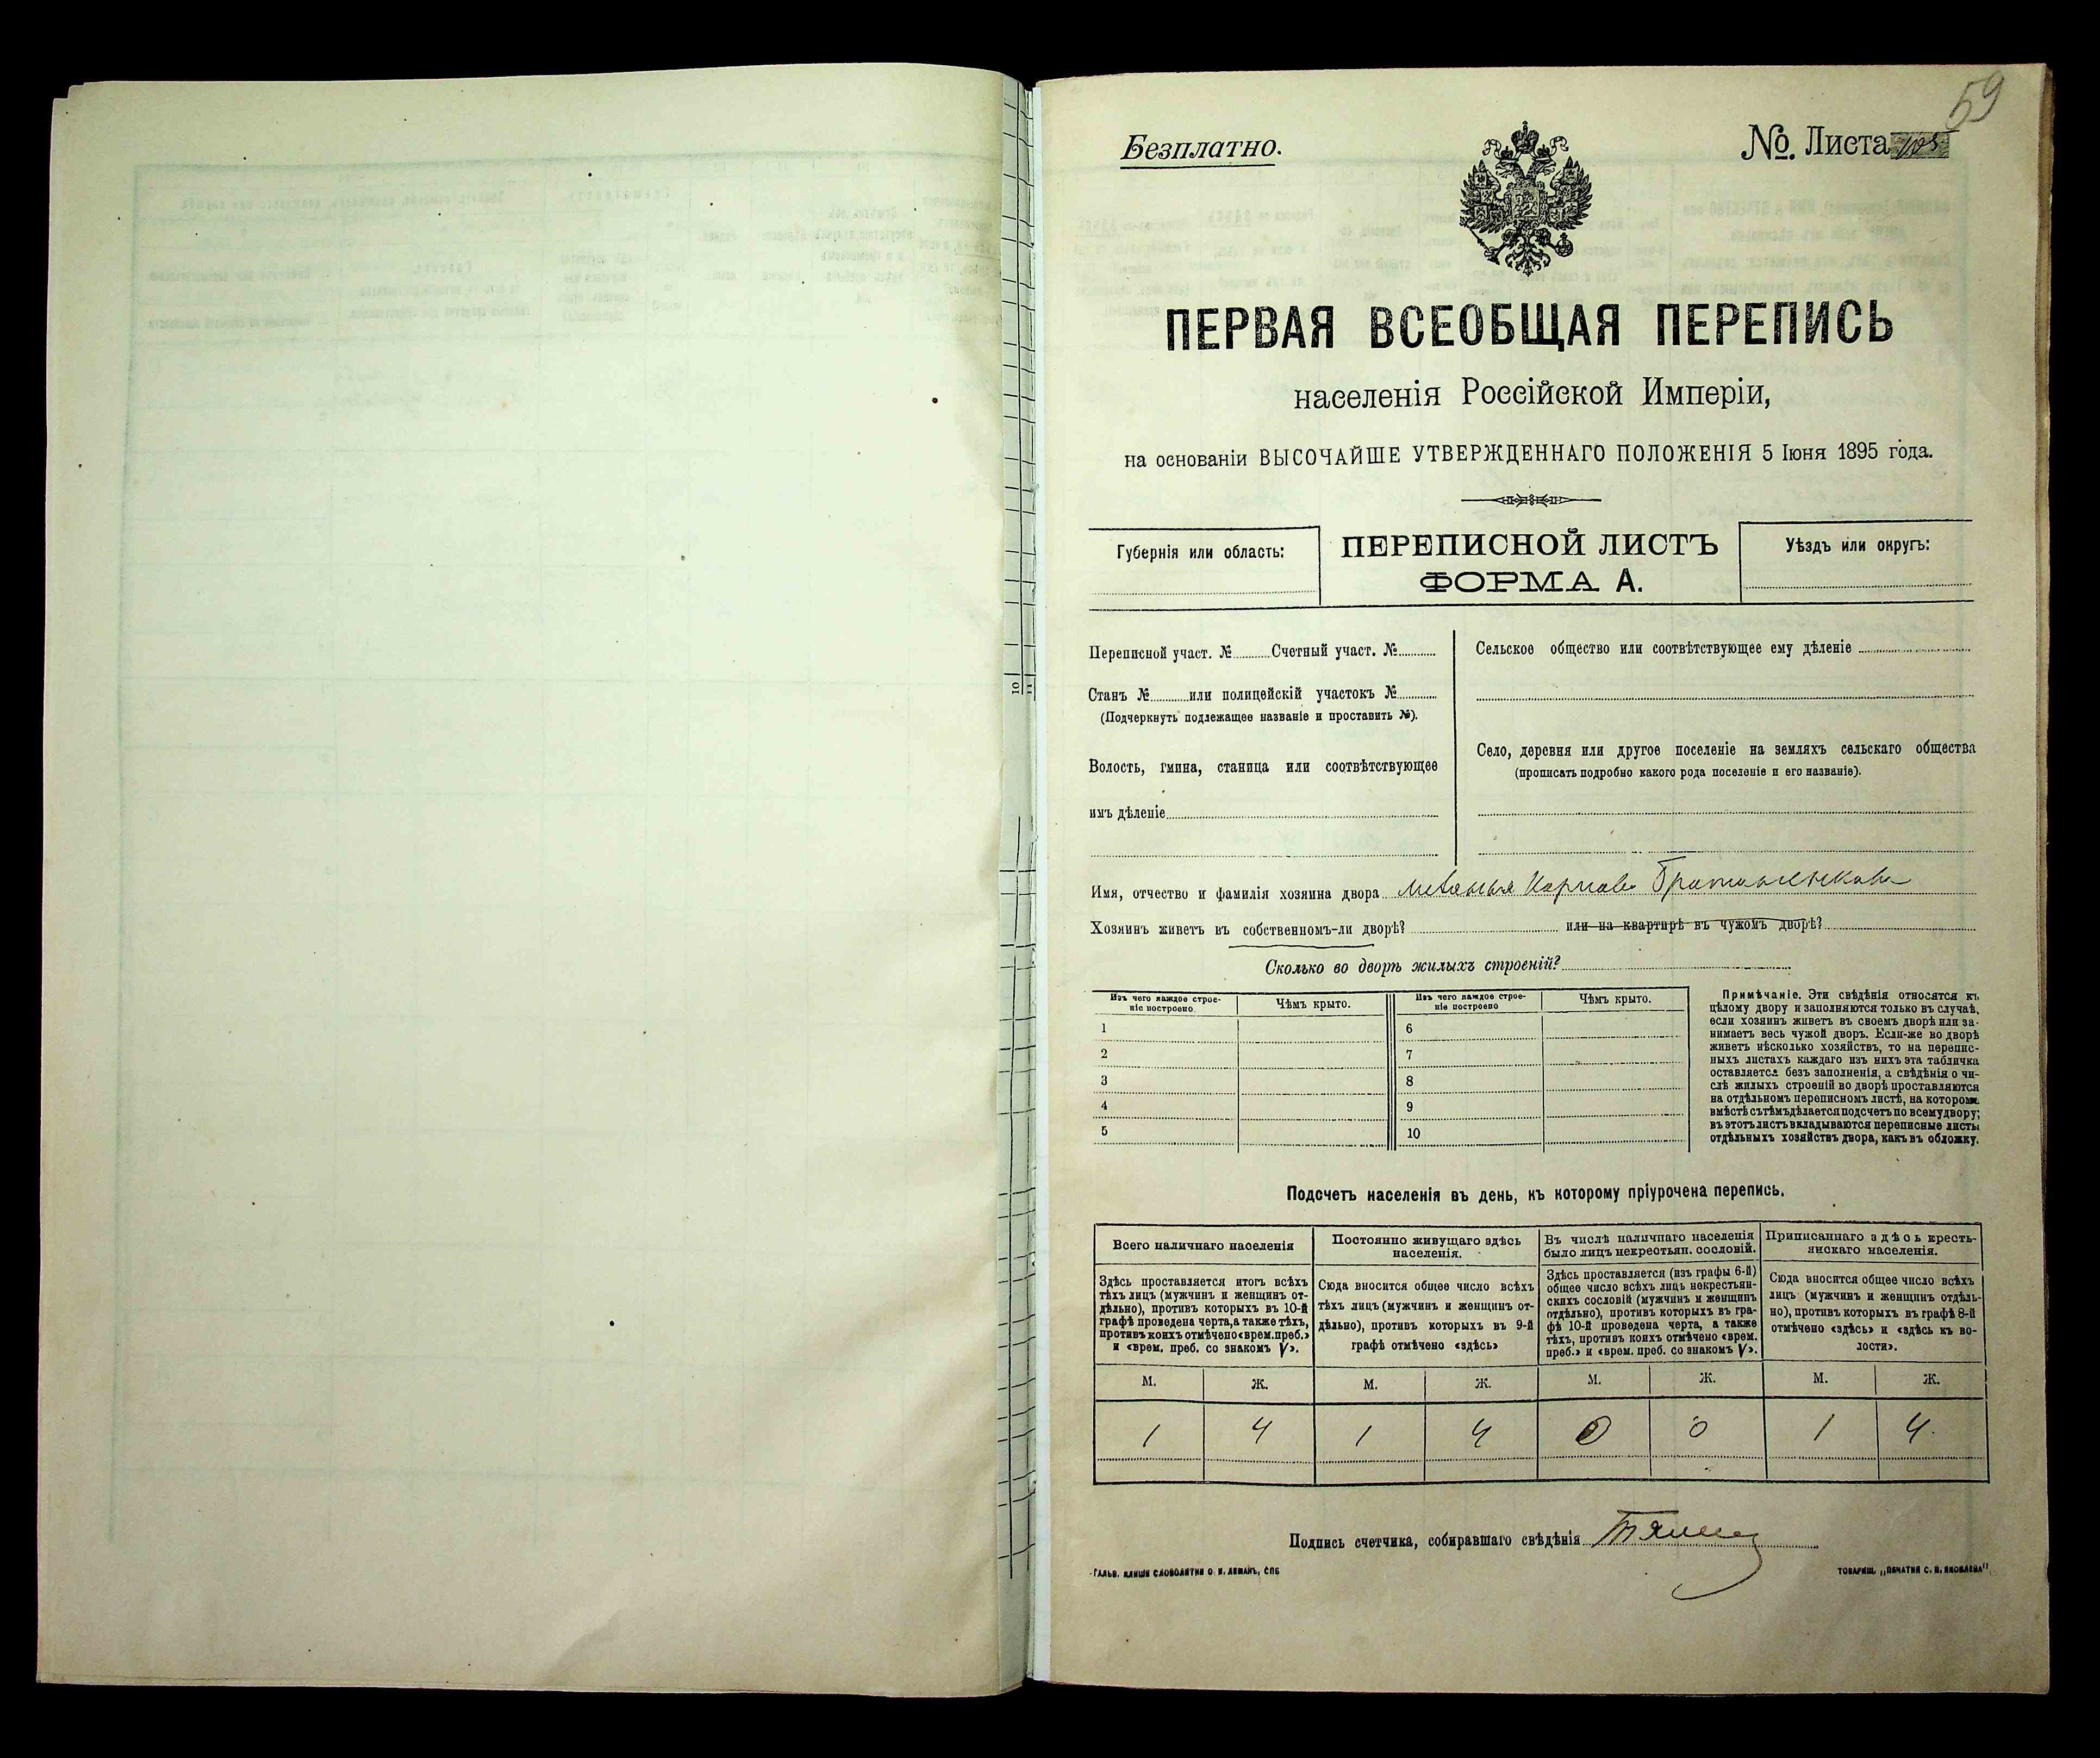 59
Безплатно.
№. Листа 105
ПЕРВАЯ ВСЕОБЩАЯ ПЕРЕПИСЬ
населенія Россійской Имперіи,
на основаніи ВЫСОЧАЙШЕ УТВЕРЖДЕННАГО ПОЛОЖЕНІЯ 5 Іюня 1895 года.
Губернія или область:
ПЕРЕПИСНОЙ ЛИСТЪ
ФОРМА А.
Уѣздъ или округъ:
Переписной участ. № Счетный участ. №
Станъ № или полицейскій участокъ №
(Подчеркнуть подлежащее названіе и проставить №).
Волость, гмина, станица или соотвѣтствующее
имъ дѣленіе
Сельское общество или соотвѣтствующее ему дѣленіе
Село, деревня или другое поселеніе на земляхъ сельскаго общества
(прописать подробно какого рода поселеніе и его названіе).
Имя, отчество и фамилія хозяина двора
Хозяинъ живетъ въ собственномъ-ли дворѣ? или на квартирѣ въ чужомъ дворѣ?
Сколько во дворѣ жилыхъ строеній?
Изъ чего каждое строе-
ніе построено
Чѣмъ крыто.
1
2
3
4
5
Изъ чего каждое строе-
ніе построено
Чѣмъ крыто.
6
7
8
9
10
Примѣчаніе. Эти свѣдѣнія относятся къ
цѣлому двору и заполняются только въ случаѣ,
если хозяинъ живетъ въ своемъ дворѣ или за-
нимаетъ весь чужой дворъ. Если-же во дворѣ
живетъ нѣсколько хозяйствъ, то на перепис-
ныхъ листахъ каждаго изъ нихъ эта табличка
оставляется безъ заполненія, а свѣдѣнія о чи-
слѣ жилыхъ строеній во дворѣ проставляются
на отдѣльномъ переписномъ листѣ, на которомъ
вмѣстѣ съ тѣмъ дѣлается подсчетъ по всему двору;
въ этотъ листъ вкладываются переписные листы
отдѣльныхъ хозяйствъ двора, какъ въ обложку.
Подсчетъ населенія въ день, къ которому пріурочена перепись.
Всего наличнаго населенія
Здѣсь проставляется итогъ всѣхъ
тѣхъ лицъ (мужчинъ и женщинъ от-
дѣльно), противъ которыхъ въ 10-й
графѣ проведена черта, а также тѣхъ,
противъ коихъ отмѣчено «врем. преб.»
и «врем. преб. со знакомъ V».
Постоянно живущаго здѣсь
населенія.
Сюда вносится общее число всѣхъ
тѣхъ лицъ (мужчинъ и женщинъ от-
дѣльно), противъ которыхъ въ 9-й
графѣ отмѣчено «здѣсь»
Въ числѣ наличнаго населенія
было лицъ некрестьян. сословій.
Здѣсь проставляется (изъ графы 6-й)
общее число всѣхъ лицъ некрестьян-
скихъ сословій (мужчинъ и женщинъ
отдѣльно), противъ которыхъ въ гра-
фѣ 10-й проведена черта, а также
тѣхъ, противъ коихъ отмѣчено «врем.
преб.» и «врем. преб. со знакомъ V».
Приписаннаго здѣсь кресть-
янскаго населенія.
Сюда вносится общее число всѣхъ
лицъ (мужчинъ и женщинъ отдѣль-
но), противъ которыхъ въ графѣ 8-й
отмѣчено «здѣсь» и «здѣсь къ во-
лости».
М. Ж. М. Ж. М. Ж. М. Ж.
1 4 1 4 0 0 1 4
Подпись счетчика, собиравшаго свѣдѣнія
ГАЛЬВ. КЛИШЕ СЛОВОЛИТНИ О. И. ЛЕМАНЪ, СПБ
ТОВАРИЩ. „ПЕЧАТНЯ С. П. ЯКОВЛЕВА"
10
11